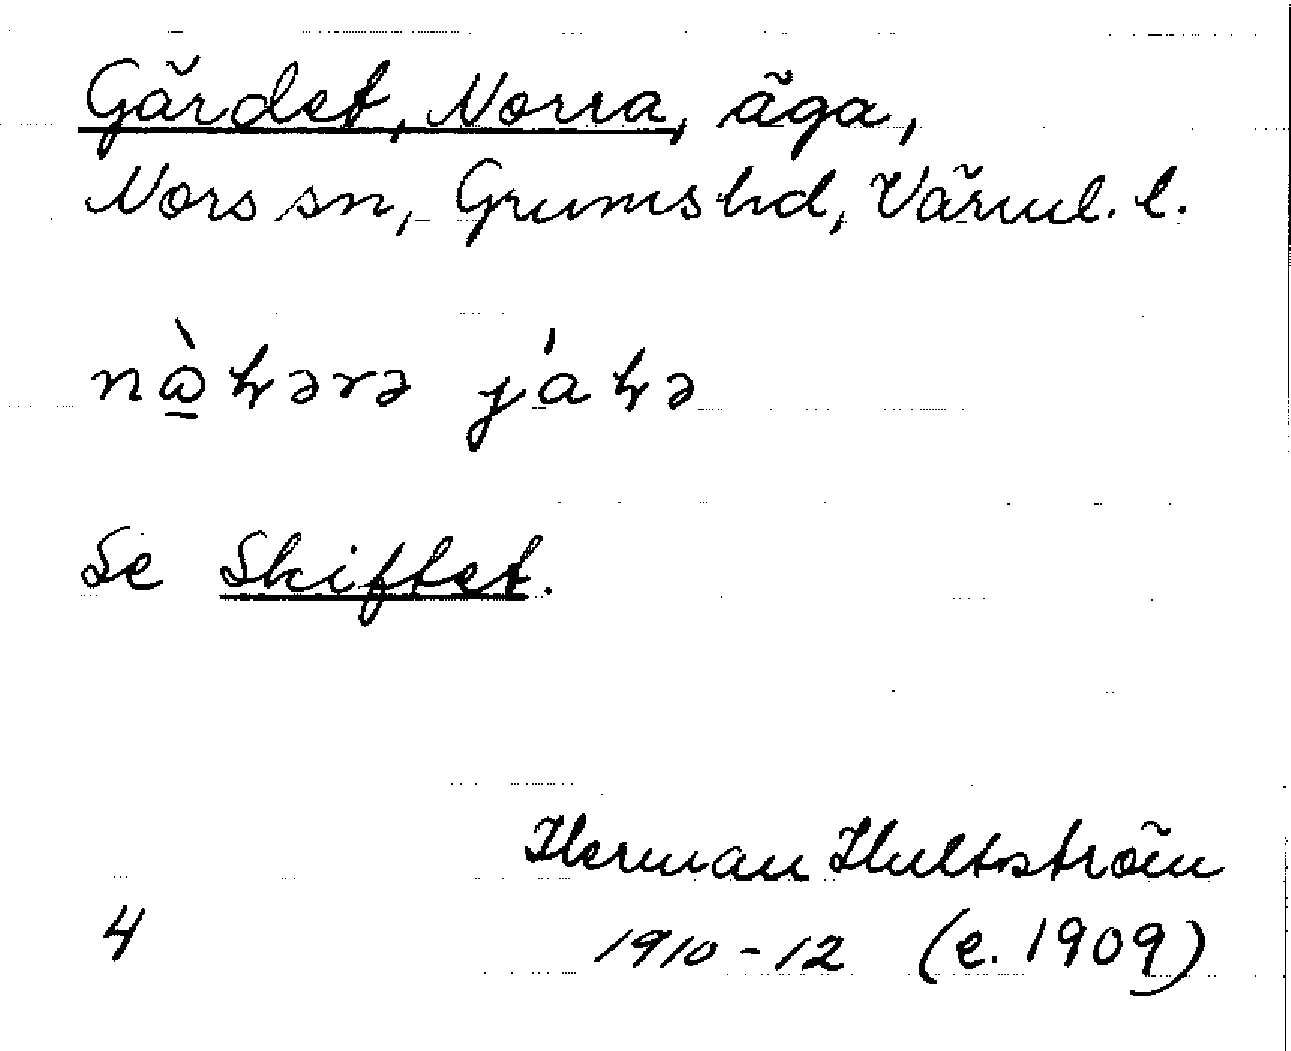 Gärdet, Norra, äga,
Nors sn, Grums hd, Värml. l.
Se Skiftet.
Herman Hultström
4 1910-12 (e. 1909)